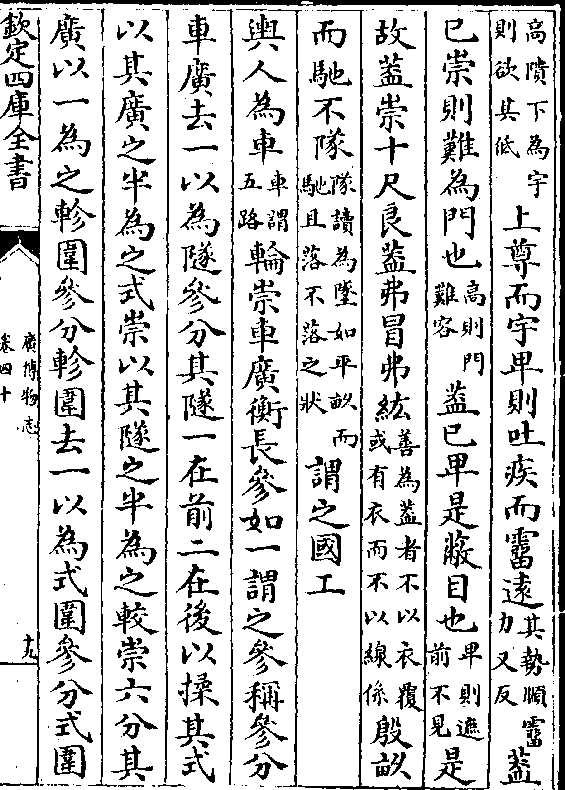 高隤下為宇則欲其低上尊而宇卑則吐疾而霤遠其勢順霤力又反蓋
已崇則難為門也高則門難容蓋已卑是蔽目也卑則遮前不見是
故蓋崇十尺良蓋弗冒弗紘善為蓋者不以衣覆或有衣而不以線係殷畝
而馳不隊隊讀為墜如平畝而馳且落不落之狀謂之國工
輿人為車車謂五路輪崇車廣衡長參如一謂之參稱參分
車廣去一以為隧參分其隧一在前二在後以揉其式
以其廣之半為之式崇以其隧之半為之較崇六分其
廣以一為之軫圍參分軫圍去一以為式圍參分式圍
欽定四庫全書
廣博物志
卷四十
十九